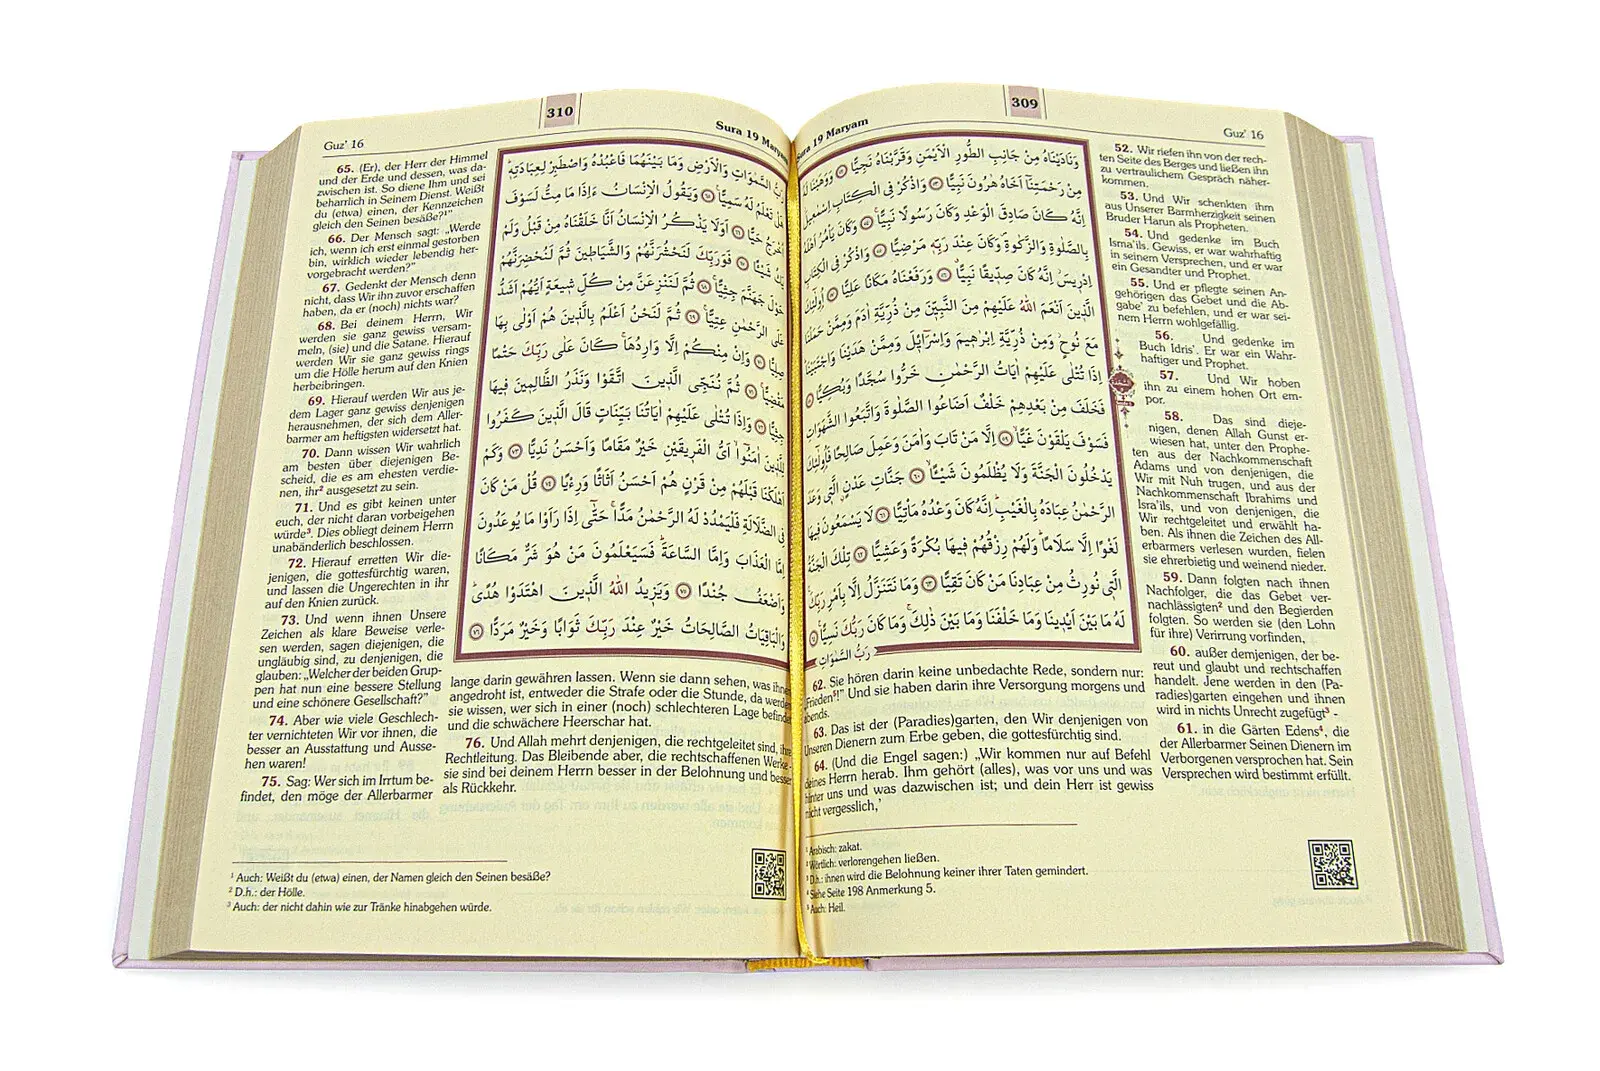 309
Sura 19 Maryam
Guz' 16
وَنَادَيْنَاهُ مِنْ جَانِبِ الطُّورِ الْاَيْمَنِ وَقَرَّبْنَاهُ نَجِيًّا ﴿٥٢﴾ وَوَهَبْنَا لَهُ
مِنْ رَحْمَتِنَٓا اَخَاهُ هٰرُونَ نَبِيًّا ﴿٥٣﴾ وَاذْكُرْ فِي الْكِتَابِ اِسْمٰعِيلَ
اِنَّهُ كَانَ صَادِقَ الْوَعْدِ وَكَانَ رَسُولًا نَبِيًّا ﴿٥٤﴾ وَكَانَ يَأْمُرُ اَهْلَهُ
بِالصَّلٰوةِ وَالزَّكٰوةِ وَكَانَ عِنْدَ رَبِّهِ مَرْضِيًّا ﴿٥٥﴾ وَاذْكُرْ فِي الْكِتَابِ
اِدْرِيسَ اِنَّهُ كَانَ صِدِّيقًا نَبِيًّا ﴿٥٦﴾ وَرَفَعْنَاهُ مَكَانًا عَلِيًّا ﴿٥٧﴾ اُو۬لٰٓئِكَ
الَّذِينَ اَنْعَمَ اللّٰهُ عَلَيْهِمْ مِنَ النَّبِيِّنَ مِنْ ذُرِّيَّةِ اٰدَمَ وَمِمَّنْ حَمَلْنَا
مَعَ نُوحٍ وَمِنْ ذُرِّيَّةِ اِبْرٰهِيمَ وَاِسْرَٓائِلَ وَمِمَّنْ هَدَيْنَا وَاجْتَبَيْنَا
اِذَا تُتْلٰى عَلَيْهِمْ اٰيَاتُ الرَّحْمٰنِ خَرُّوا سُجَّدًا وَبُكِيًّا ﴿٥٨﴾
فَخَلَفَ مِنْ بَعْدِهِمْ خَلْفٌ اَضَاعُوا الصَّلٰوةَ وَاتَّبَعُوا الشَّهَوَاتِ
فَسَوْفَ يَلْقَوْنَ غَيًّا ﴿٥٩﴾ اِلَّا مَنْ تَابَ وَاٰمَنَ وَعَمِلَ صَالِحًا فَاُو۬لٰٓئِكَ
يَدْخُلُونَ الْجَنَّةَ وَلَا يُظْلَمُونَ شَيْـًٔا ﴿٦٠﴾ جَنَّاتِ عَدْنٍ الَّتِي وَعَدَ
الرَّحْمٰنُ عِبَادَهُ بِالْغَيْبِ اِنَّهُ كَانَ وَعْدُهُ مَأْتِيًّا ﴿٦١﴾ لَا يَسْمَعُونَ فِيهَا
لَغْوًا اِلَّا سَلَامًا وَلَهُمْ رِزْقُهُمْ فِيهَا بُكْرَةً وَعَشِيًّا ﴿٦٢﴾ تِلْكَ الْجَنَّةُ
الَّتِي نُورِثُ مِنْ عِبَادِنَا مَنْ كَانَ تَقِيًّا ﴿٦٣﴾ وَمَا نَتَنَزَّلُ اِلَّا بِاَمْرِ رَبِّكَ
لَهُ مَا بَيْنَ اَيْدِينَا وَمَا خَلْفَنَا وَمَا بَيْنَ ذٰلِكَ وَمَا كَانَ رَبُّكَ نَسِيًّا ﴿٦٤﴾
رَبُّ السَّمٰوَاتِ
52. Wir riefen ihn von der rech-
ten Seite des Berges und ließen ihn
zu vertraulichem Gespräch näher-
kommen.
53. Und Wir schenkten ihm
aus Unserer Barmherzigkeit seinen
Bruder Harun als Propheten.
54. Und gedenke im Buch
Isma'ils. Gewiss, er war wahrhaftig
in seinem Versprechen, und er war
ein Gesandter und Prophet.
55. Und er pflegte seinen An-
gehörigen das Gebet und die Ab-
gabe¹ zu befehlen, und er war sei-
nem Herrn wohlgefällig.
56. Und gedenke im
Buch Idris'. Er war ein Wahr-
haftiger und Prophet.
57. Und Wir hoben
ihn zu einem hohen Ort em-
por.
58. Das sind dieje-
nigen, denen Allah Gunst er-
wiesen hat, unter den Prophe-
ten aus der Nachkommenschaft
Adams und von denjenigen, die
Wir mit Nuh trugen, und aus der
Nachkommenschaft Ibrahims und
Isra'ils, und von denjenigen, die
Wir rechtgeleitet und erwählt ha-
ben. Als ihnen die Zeichen des All-
erbarmers verlesen wurden, fielen
sie ehrerbietig und weinend nieder.
59. Dann folgten nach ihnen
Nachfolger, die das Gebet ver-
nachlässigten² und den Begierden
folgten. So werden sie (den Lohn
für ihre) Verirrung vorfinden,
60. außer demjenigen, der be-
reut und glaubt und rechtschaffen
handelt. Jene werden in den (Pa-
radies)garten eingehen und ihnen
wird in nichts Unrecht zugefügt³ -
61. in die Gärten Edens⁴, die
der Allerbarmer Seinen Dienern im
Verborgenen versprochen hat. Sein
Versprechen wird bestimmt erfüllt.
62. Sie hören darin keine unbedachte Rede, sondern nur:
„Frieden⁵!" Und sie haben darin ihre Versorgung morgens und
abends.
63. Das ist der (Paradies)garten, den Wir denjenigen von
Unseren Dienern zum Erbe geben, die gottesfürchtig sind.
64. (Und die Engel sagen:) „Wir kommen nur auf Befehl
deines Herrn herab. Ihm gehört (alles), was vor uns und was
hinter uns und was dazwischen ist; und dein Herr ist gewiss
nicht vergesslich,'
¹ Arabisch: zakat.
² Wörtlich: verlorengehen ließen.
³ D.h.: ihnen wird die Belohnung keiner ihrer Taten gemindert.
⁴ Siehe Seite 198 Anmerkung 5.
⁵ Auch: Heil.
310
Guz' 16
Sura 19 Maryam
رَبُّ السَّمٰوَاتِ وَالْاَرْضِ وَمَا بَيْنَهُمَا فَاعْبُدْهُ وَاصْطَبِرْ لِعِبَادَتِهِ
هَلْ تَعْلَمُ لَهُ سَمِيًّا ﴿٦٥﴾ وَيَقُولُ الْاِنْسَانُ ءَاِذَا مَا مِتُّ لَسَوْفَ
اُخْرَجُ حَيًّا ﴿٦٦﴾ اَوَلَا يَذْكُرُ الْاِنْسَانُ اَنَّا خَلَقْنَاهُ مِنْ قَبْلُ وَلَمْ
يَكُ شَيْـًٔا ﴿٦٧﴾ فَوَرَبِّكَ لَنَحْشُرَنَّهُمْ وَالشَّيَاطِينَ ثُمَّ لَنُحْضِرَنَّهُمْ
حَوْلَ جَهَنَّمَ جِثِيًّا ﴿٦٨﴾ ثُمَّ لَنَنْزِعَنَّ مِنْ كُلِّ شِيعَةٍ اَيُّهُمْ اَشَدُّ
عَلَى الرَّحْمٰنِ عِتِيًّا ﴿٦٩﴾ ثُمَّ لَنَحْنُ اَعْلَمُ بِالَّذِينَ هُمْ اَوْلٰى بِهَا
صِلِيًّا ﴿٧٠﴾ وَاِنْ مِنْكُمْ اِلَّا وَارِدُهَا كَانَ عَلٰى رَبِّكَ حَتْمًا
مَقْضِيًّا ﴿٧١﴾ ثُمَّ نُنَجِّي الَّذِينَ اتَّقَوْا وَنَذَرُ الظَّالِمِينَ فِيهَا
جِثِيًّا ﴿٧٢﴾ وَاِذَا تُتْلٰى عَلَيْهِمْ اٰيَاتُنَا بَيِّنَاتٍ قَالَ الَّذِينَ كَفَرُوا
لِلَّذِينَ اٰمَنُٓوا اَيُّ الْفَرِيقَيْنِ خَيْرٌ مَقَامًا وَاَحْسَنُ نَدِيًّا ﴿٧٣﴾ وَكَمْ
اَهْلَكْنَا قَبْلَهُمْ مِنْ قَرْنٍ هُمْ اَحْسَنُ اَثَاثًا وَرِءْيًا ﴿٧٤﴾ قُلْ مَنْ كَانَ
فِي الضَّلَالَةِ فَلْيَمْدُدْ لَهُ الرَّحْمٰنُ مَدًّا حَتّٰٓى اِذَا رَاَوْا مَا يُوعَدُونَ
اِمَّا الْعَذَابَ وَاِمَّا السَّاعَةَ فَسَيَعْلَمُونَ مَنْ هُوَ شَرٌّ مَكَانًا
وَاَضْعَفُ جُنْدًا ﴿٧٥﴾ وَيَزِيدُ اللّٰهُ الَّذِينَ اهْتَدَوْا هُدًى
وَالْبَاقِيَاتُ الصَّالِحَاتُ خَيْرٌ عِنْدَ رَبِّكَ ثَوَابًا وَخَيْرٌ مَرَدًّا ﴿٧٦﴾
65. (Er), der Herr der Himmel
und der Erde und dessen, was da-
zwischen ist. So diene Ihm und sei
beharrlich in Seinem Dienst. Weißt
du (etwa) einen, der Kennzeichen
gleich den Seinen besäße?¹"
66. Der Mensch sagt: „Werde
ich, wenn ich erst einmal gestorben
bin, wirklich wieder lebendig her-
vorgebracht werden?"
67. Gedenkt der Mensch denn
nicht, dass Wir ihn zuvor erschaffen
haben, da er (noch) nichts war?
68. Bei deinem Herrn, Wir
werden sie ganz gewiss versam-
meln, (sie) und die Satane. Hierauf
werden Wir sie ganz gewiss rings
um die Hölle herum auf den Knien
herbeibringen.
69. Hierauf werden Wir aus je-
dem Lager ganz gewiss denjenigen
herausnehmen, der sich dem Aller-
barmer am heftigsten widersetzt hat.
70. Dann wissen Wir wahrlich
am besten über diejenigen Be-
scheid, die es am ehesten verdie-
nen, ihr² ausgesetzt zu sein.
71. Und es gibt keinen unter
euch, der nicht daran vorbeigehen
würde³. Dies obliegt deinem Herrn
unabänderlich beschlossen.
72. Hierauf erretten Wir die-
jenigen, die gottesfürchtig waren,
und lassen die Ungerechten in ihr
auf den Knien zurück.
73. Und wenn ihnen Unsere
Zeichen als klare Beweise verle-
sen werden, sagen diejenigen, die
ungläubig sind, zu denjenigen, die
glauben: „Welcher der beiden Grup-
pen hat nun eine bessere Stellung
und eine schönere Gesellschaft?"
74. Aber wie viele Geschlech-
ter vernichteten Wir vor ihnen, die
besser an Ausstattung und Ausse-
hen waren!
75. Sag: Wer sich im Irrtum be-
findet, den möge der Allerbarmer
lange darin gewähren lassen. Wenn sie dann sehen, was ihnen
angedroht ist, entweder die Strafe oder die Stunde, da werden
sie wissen, wer sich in einer (noch) schlechteren Lage befindet
und die schwächere Heerschar hat.
76. Und Allah mehrt denjenigen, die rechtgeleitet sind, ihre
Rechtleitung. Das Bleibende aber, die rechtschaffenen Werke -
sie sind bei deinem Herrn besser in der Belohnung und besser
als Rückkehr.
¹ Auch: Weißt du (etwa) einen, der Namen gleich den Seinen besäße?
² D.h.: der Hölle.
³ Auch: der nicht dahin wie zur Tränke hinabgehen würde.